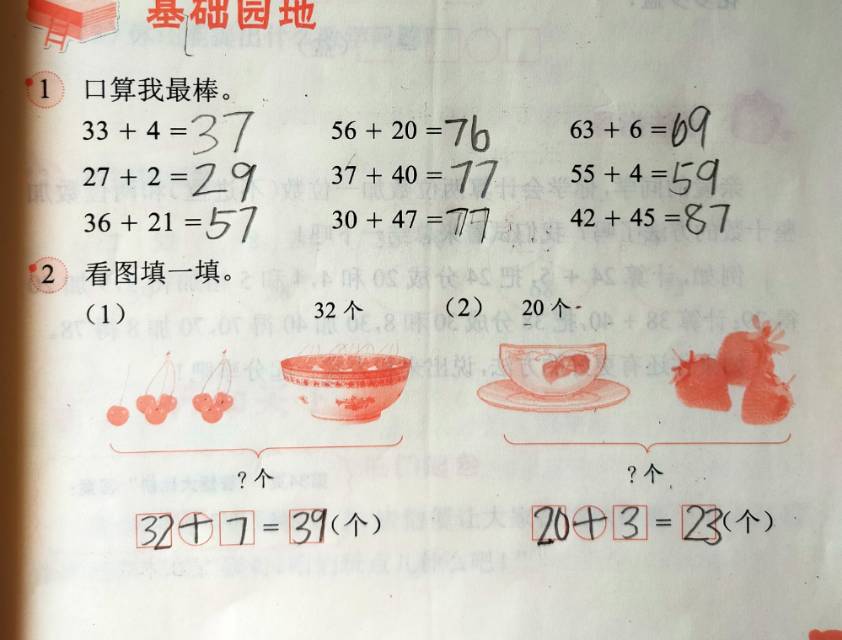 基础园地
1 口算我最棒。
33 + 4 = 37 56 + 20 = 76 63 + 6 = 69
27 + 2 = 29 37 + 40 = 77 55 + 4 = 59
36 + 21 = 57 30 + 47 = 77 42 + 45 = 87
2 看图填一填。
(1) 32 个 (2) 20 个
? 个 ? 个
32 + 7 = 39 (个) 20 + 3 = 23 (个)